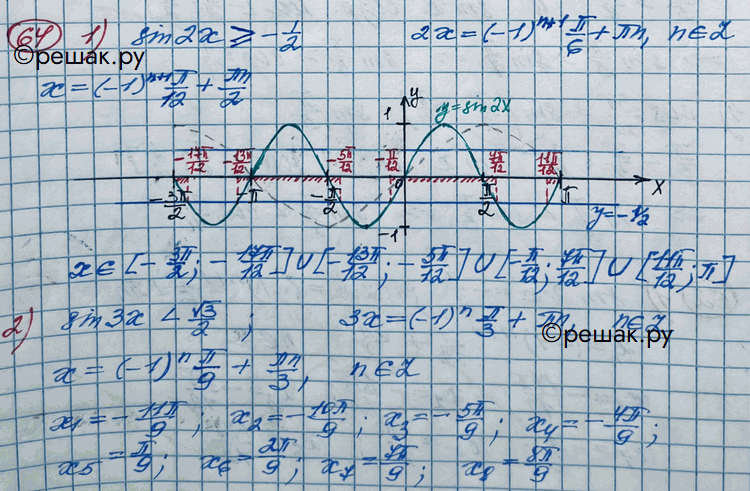 64 1) sin2x ≥ -1/2 2x = (-1)ⁿ⁺¹ π/6 + πn, n∈Z
©решак.ру
x = (-1)ⁿ⁺¹ π/12 + πn/2
y
1 y=sin2x
-17π/12 -13π/12 -5π/12 -π/12 7π/12 11π/12
-3π/2 -π -π/2 0 π/2 π x
y=-1/2
-1
x∈[-3π/2; -17π/12]∪[-13π/12; -5π/12]∪[-π/12; 7π/12]∪[11π/12; π]
2) sin3x < √3/2; 3x = (-1)ⁿ π/3 + πn, n∈Z
©решак.ру
x = (-1)ⁿ π/9 + πn/3, n∈Z
x₁ = -11π/9; x₂ = -10π/9; x₃ = -5π/9; x₄ = -4π/9;
x₅ = π/9; x₆ = 2π/9; x₇ = 7π/9; x₈ = 8π/9